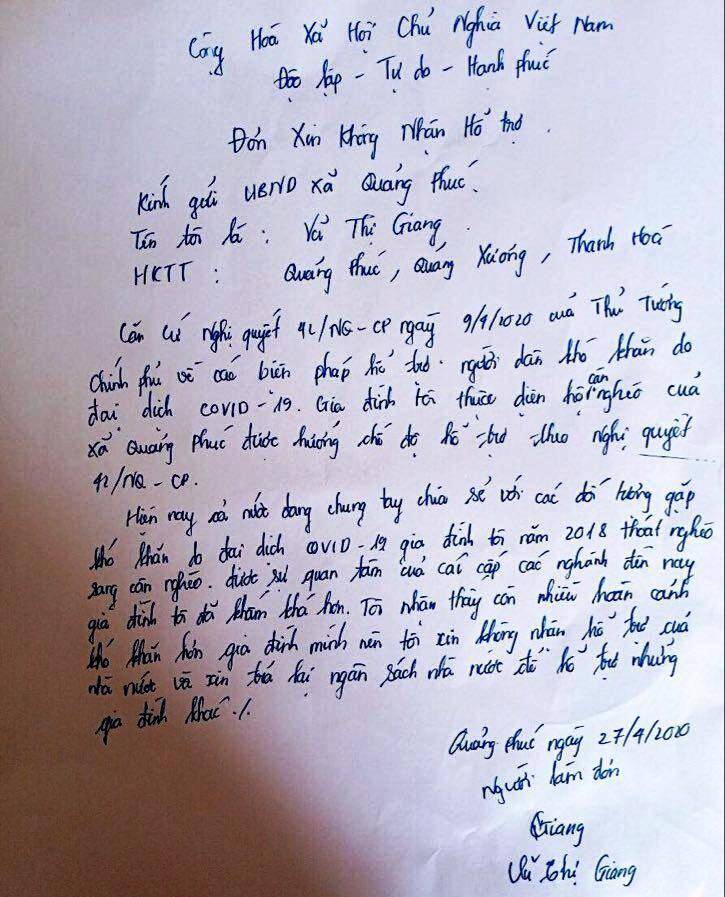 Cộng Hoà Xã Hội Chủ Nghĩa Việt Nam
Độc lập - Tự do - Hạnh phúc
Đơn Xin Không Nhận Hỗ trợ.
Kính gửi UBND xã Quảng Phúc.
Tên tôi là : Vũ Thị Giang.
HKTT : Quảng Phúc, Quảng Xương, Thanh Hoá
Căn cứ nghị quyết 42/NQ-CP ngày 9/4/2020 của Thủ Tướng
chính phủ về các biện pháp hỗ trợ người dân khó khăn do
đại dịch COVID-19. Gia đình tôi thuộc diện hộ cận nghèo của
xã Quảng Phúc được hưởng chế độ hỗ trợ theo nghị quyết
42/NQ-CP.
Hiện nay cả nước đang chung tay chia sẻ với các đối tượng gặp
khó khăn do đại dịch COVID-19 gia đình tôi năm 2018 thoát nghèo
sang cận nghèo. được sự quan tâm của các cấp các nghành đến nay
gia đình tôi đã khấm khá hơn. Tôi nhận thấy còn nhiều hoàn cảnh
khó khăn hơn gia đình mình nên tôi xin không nhận hỗ trợ của
nhà nước và xin trả lại ngân sách nhà nước để hỗ trợ những
gia đình khác ./.
Quảng Phúc ngày 27/4/2020
Người làm đơn
Giang
Vũ Thị Giang